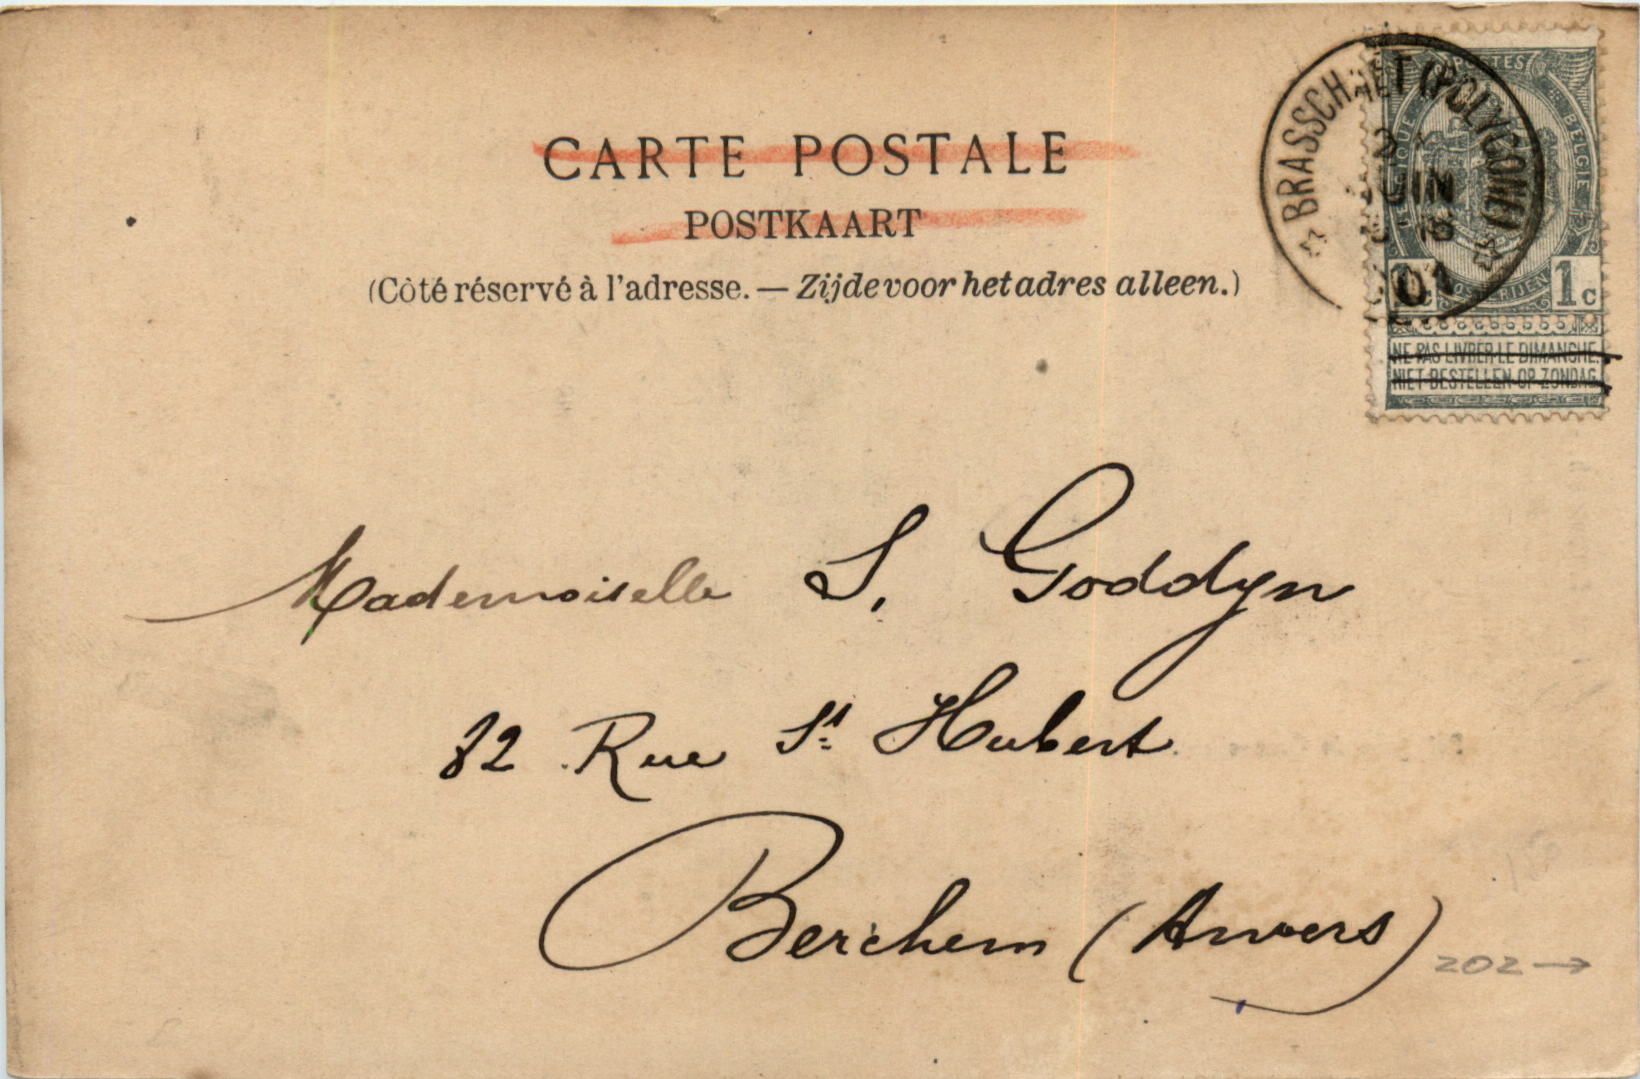 CARTE POSTALE
POSTKAART
(Côté réservé à l'adresse. — Zijde voor het adres alleen.)
BRASSCHAET (POLYGONE)
JUIN
01
POSTES
BELGIE
1c
NE PAS LIVRER LE DIMANCHE.
NIET BESTELLEN OP ZONDAG.
Mademoiselle S. Goddyn
82 Rue St Hubert
Berchem (Anvers)
202 →